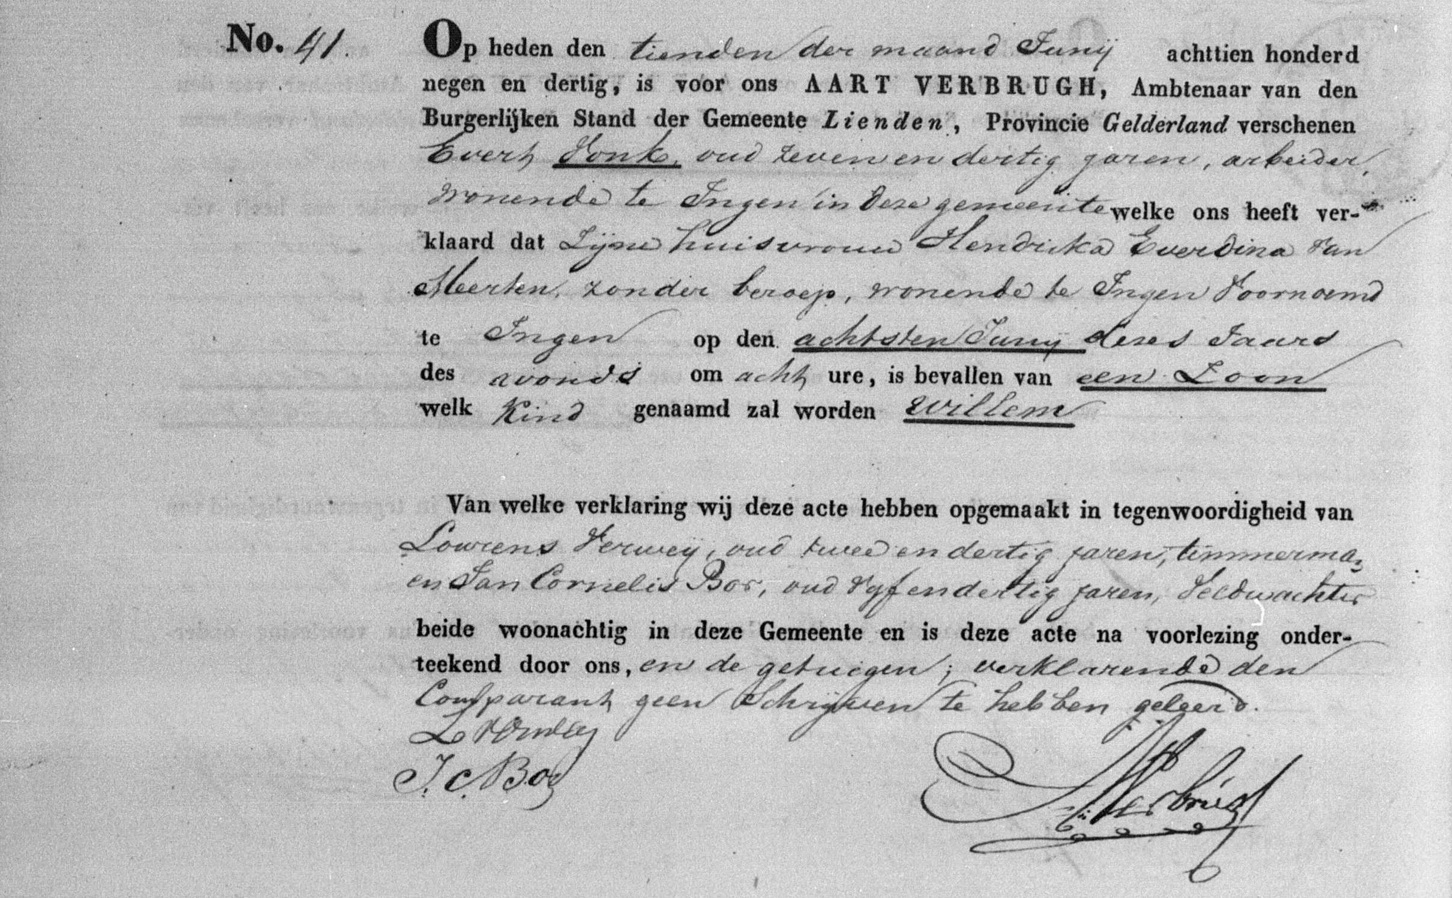 No. 41.
Op heden den tienden der maand Junij achttien honderd
negen en dertig, is voor ons AART VERBRUGH, Ambtenaar van den
Burgerlijken Stand der Gemeente Lienden, Provincie Gelderland verschenen
Evert Vonk, oud zeven en dertig jaren, arbeider,
wonende te Ingen in deze gemeente welke ons heeft ver-
klaard dat Zijne huisvrouw Hendrika Everdina van
Meerten, zonder beroep, wonende te Ingen voornoemd
te Ingen op den achtsten Junij dezes Jaars
des avonds om acht ure, is bevallen van een Zoon
welk Kind genaamd zal worden Willem
Van welke verklaring wij deze acte hebben opgemaakt in tegenwoordigheid van
Lourens Verweij, oud twee en dertig jaren, timmerman
en Jan Cornelis Bos, oud vyf en dertig jaren, Veldwachter
beide woonachtig in deze Gemeente en is deze acte na voorlezing onder-
teekend door ons, en de getuigen; verklarende den
Comparant geen Schrijven te hebben geleerd.
L Verweij
J. C. Bos
A Verbrugh